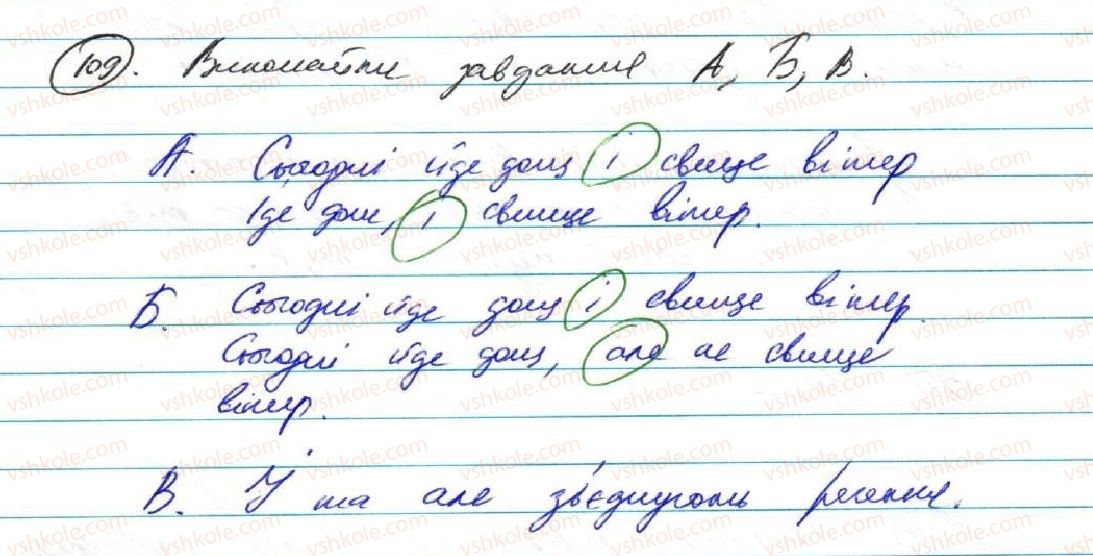 109. Виконайте завдання А, Б, В.
А. Сьогодні йде дощ і свище вітер
Іде дощ, і свище вітер.
Б. Сьогодні йде дощ і свище вітер.
Сьогодні йде дощ, але не свище
вітер.
В. І та але з'єднують речення.